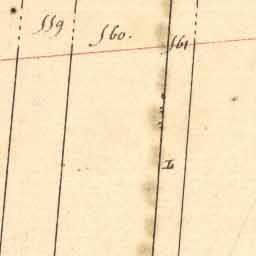 559
560.
561
I